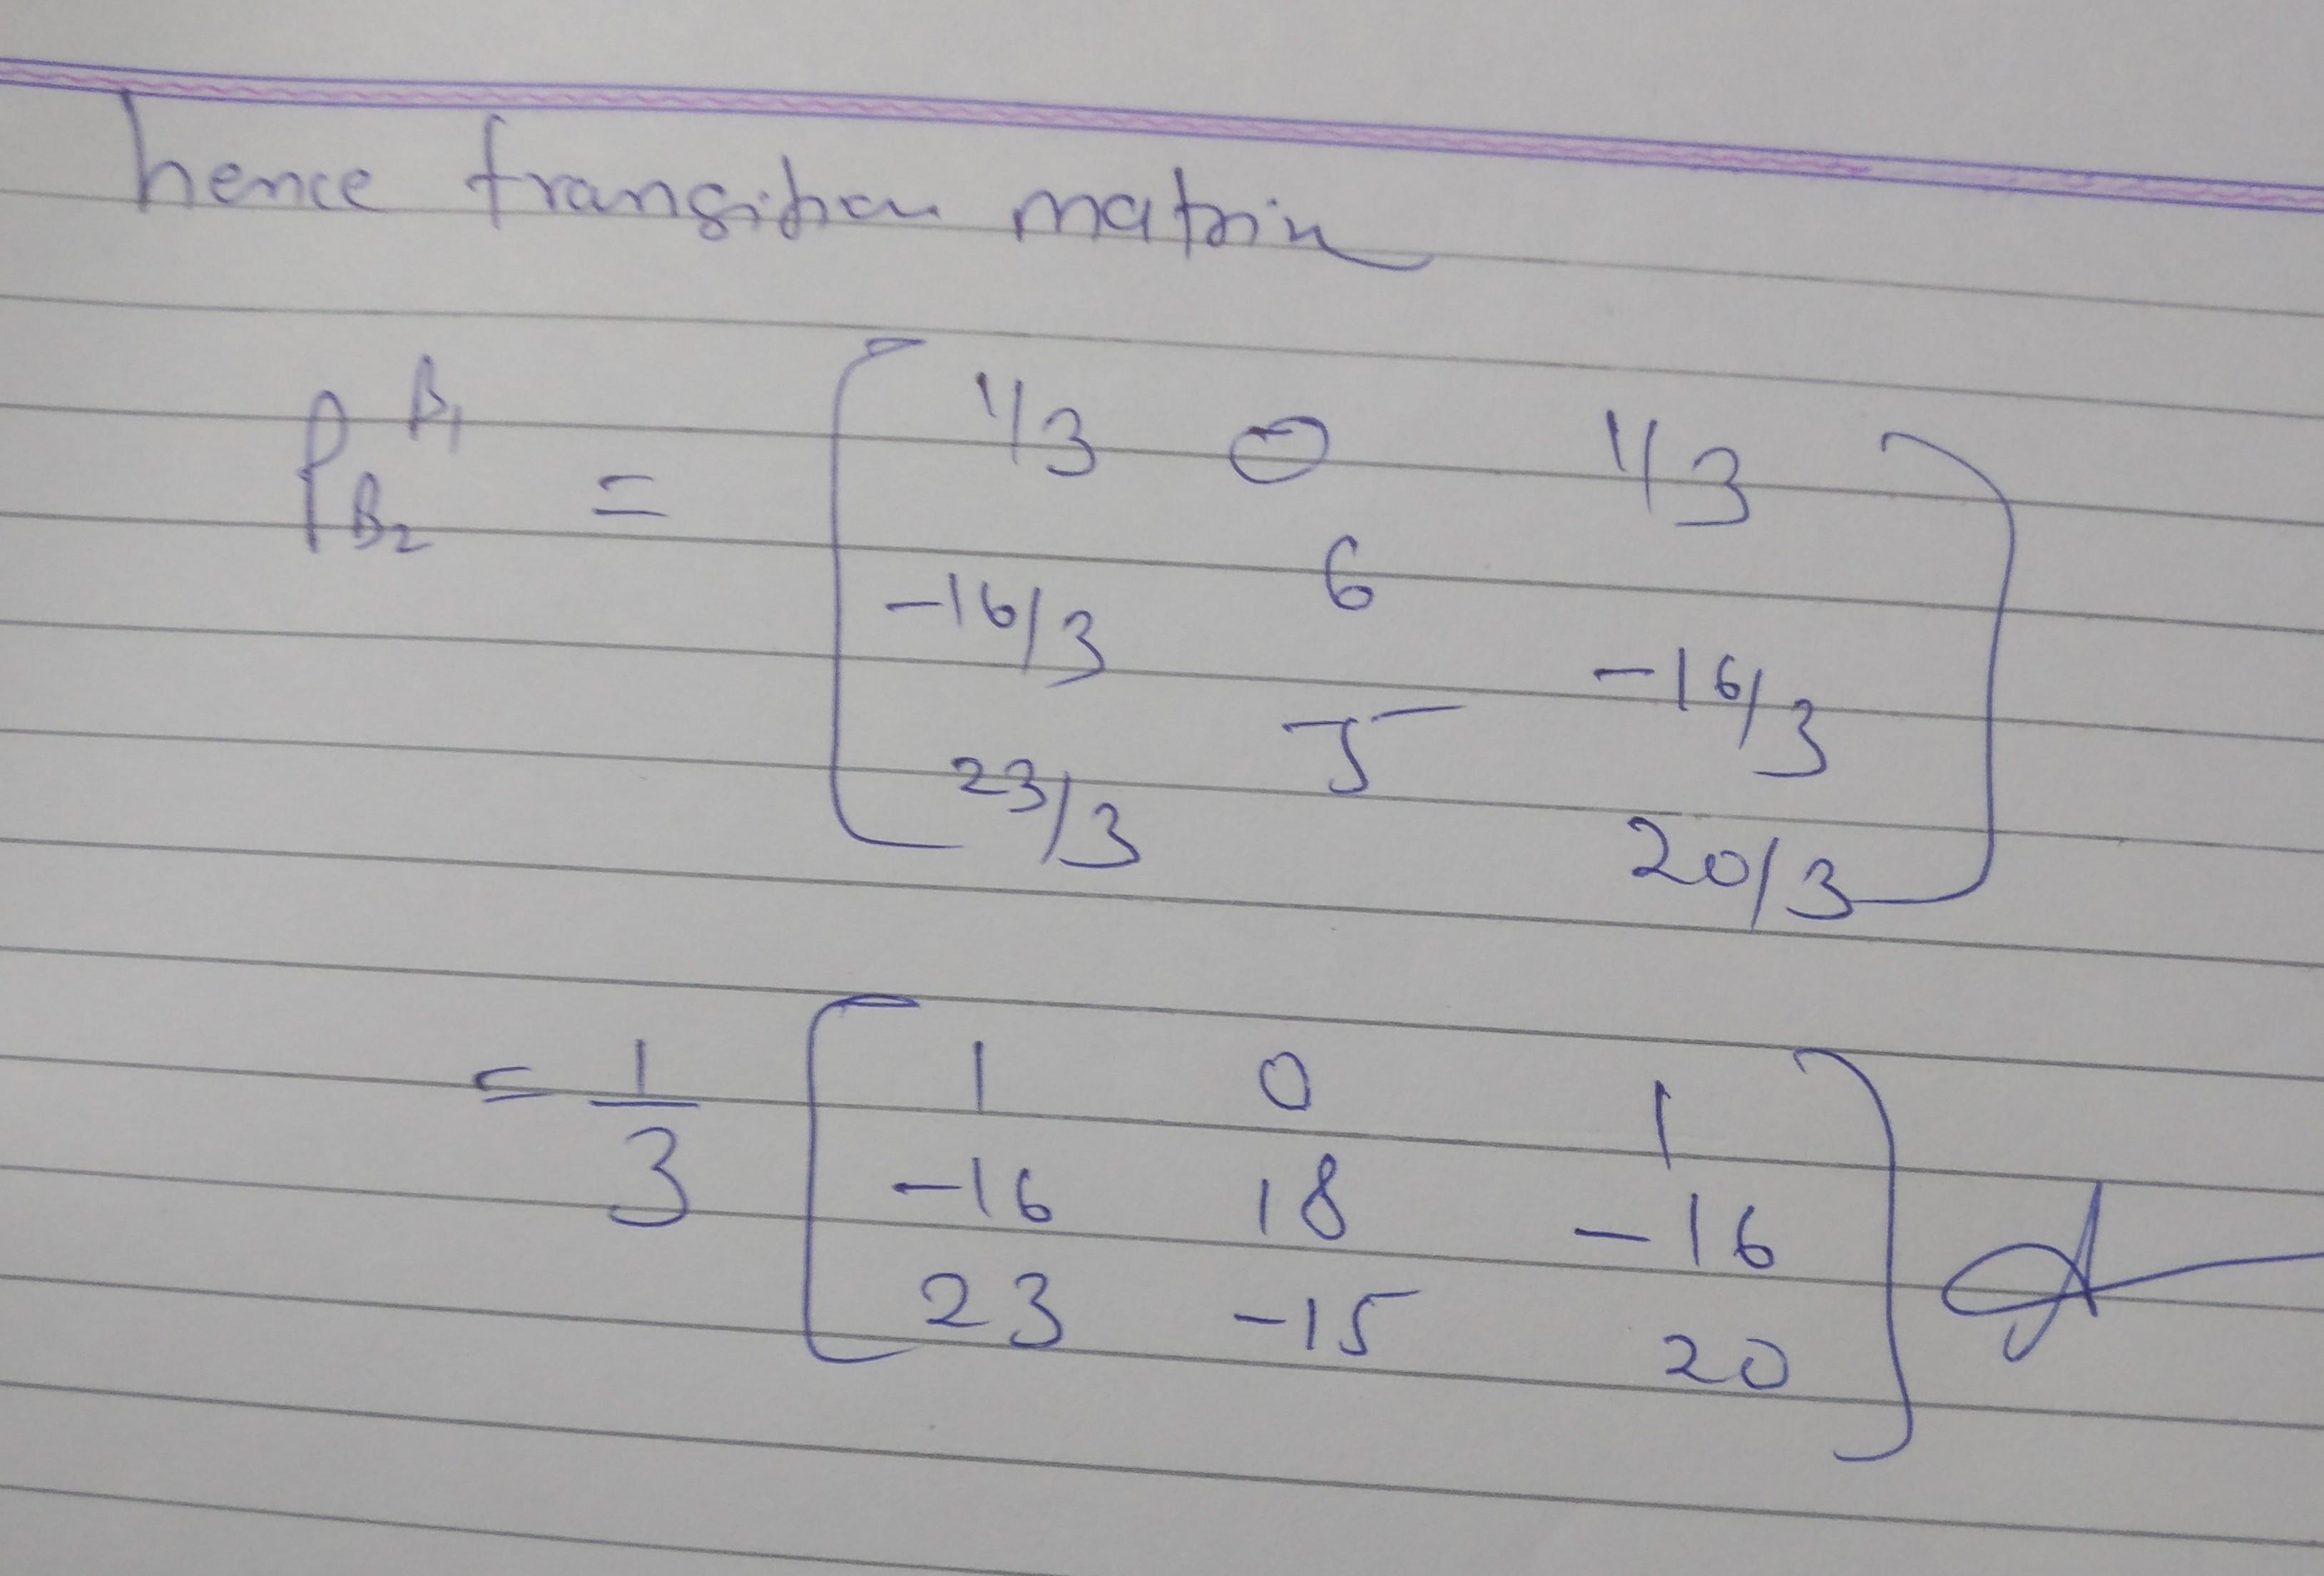 hence transition matrix
P_{B2}^{B1} = [ 1/3 0 1/3
-16/3 6 -16/3
23/3 5 20/3 ]
= 1/3 [ 1 0 1
-16 18 -16
23 -15 20 ]